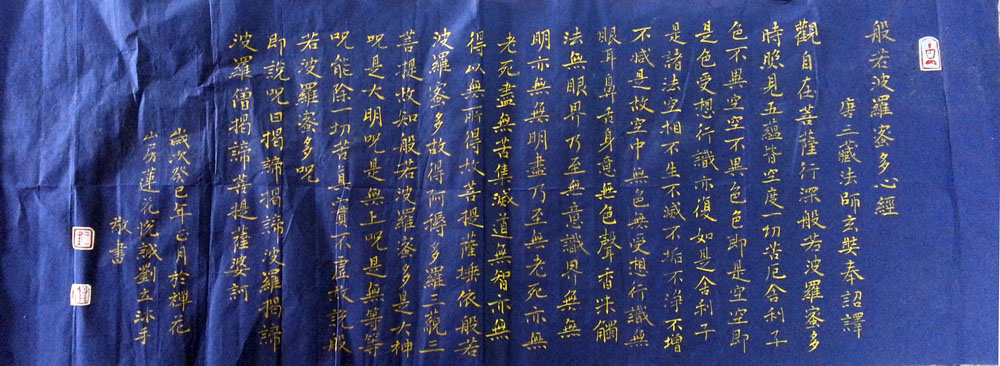 般若波羅蜜多心經
唐三藏法師玄奘奉詔譯
觀自在菩薩行深般若波羅蜜多
時照見五蘊皆空度一切苦厄舍利子
色不異空空不異色色即是空空即
是色受想行識亦復如是舍利子
是諸法空相不生不滅不垢不淨不增
不減是故空中無色無受想行識無
眼耳鼻舌身意無色聲香味觸
法無眼界乃至無意識界無無
明亦無無明盡乃至無老死亦無
老死盡無苦集滅道無智亦無
得以無所得故菩提薩埵依般若
波羅蜜多故得阿耨多羅三藐三
菩提故知般若波羅蜜多是大神
呪是大明呪是無上呪是無等等
呪能除一切苦真實不虛故說般
若波羅蜜多呪
即說呪曰揭諦揭諦波羅揭諦
波羅僧揭諦菩提薩婆訶
歲次癸巳年正月於禪花
山房蓮花浣誠劉立冰手
敬書